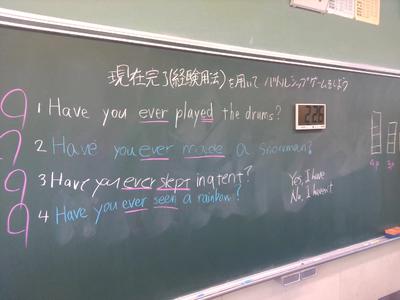 現在完了(経験用法)を用いて バトルシップゲームをしよう
9 1 Have you ever played the drums?
7 2 Have you ever made a snowman?
9 3 Have you ever slept in a tent?
9 4 Have you ever seen a rainbow?
Yes, I have
No, I haven't